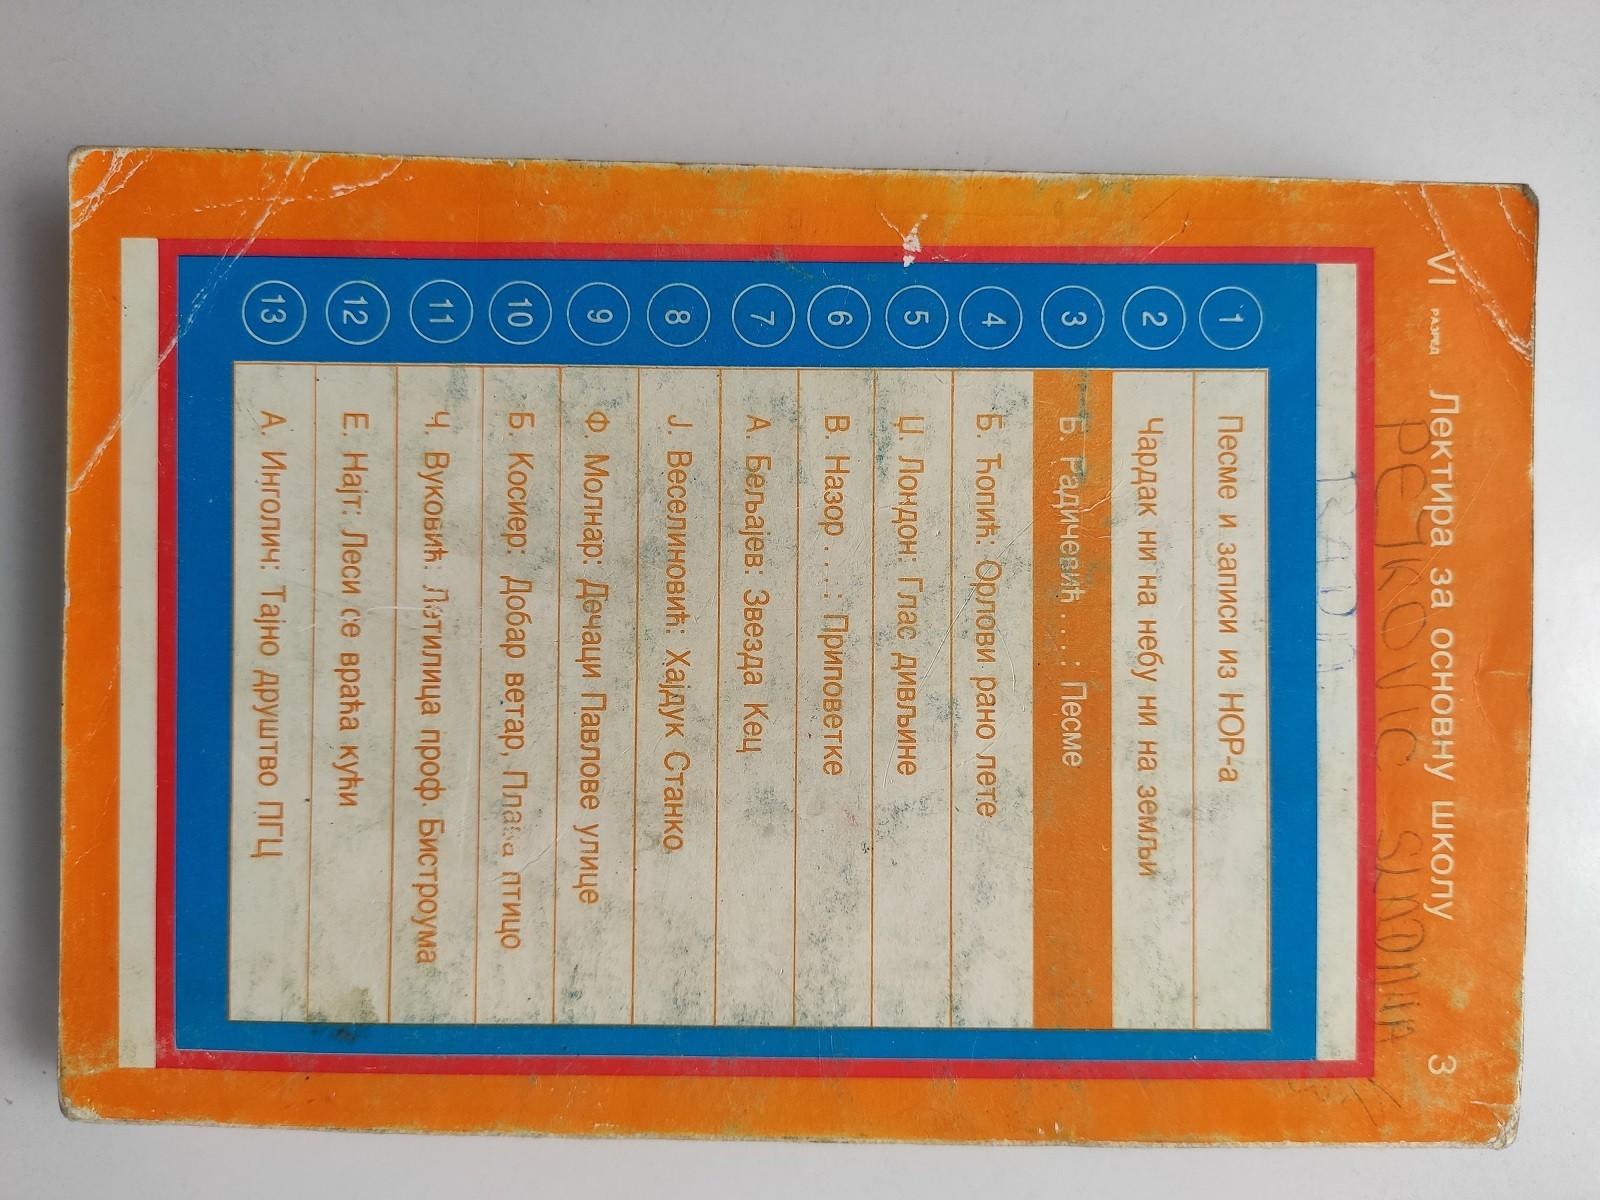 VI РАЗРЕД Лектира за основну школу 3
PETKOVIC
1 Песме и записи из НОР-а
2 Чардак ни на небу ни на земљи
3 Б. Радичевић . . . : Песме
4 Б. Ћопић: Орлови рано лете
5 Џ. Лондон: Глас дивљине
6 В. Назор . . . : Приповетке
7 А. Бељајев: Звезда Кец
8 Ј. Веселиновић: Хајдук Станко
9 Ф. Молнар: Дечаци Павлове улице
10 Б. Косиер: Добар ветар, Плава птицо
11 Ч. Вуковић: Летилица проф. Бистроума
12 Е. Најт: Леси се враћа кући
13 А. Инголич: Тајно друштво ПГЦ